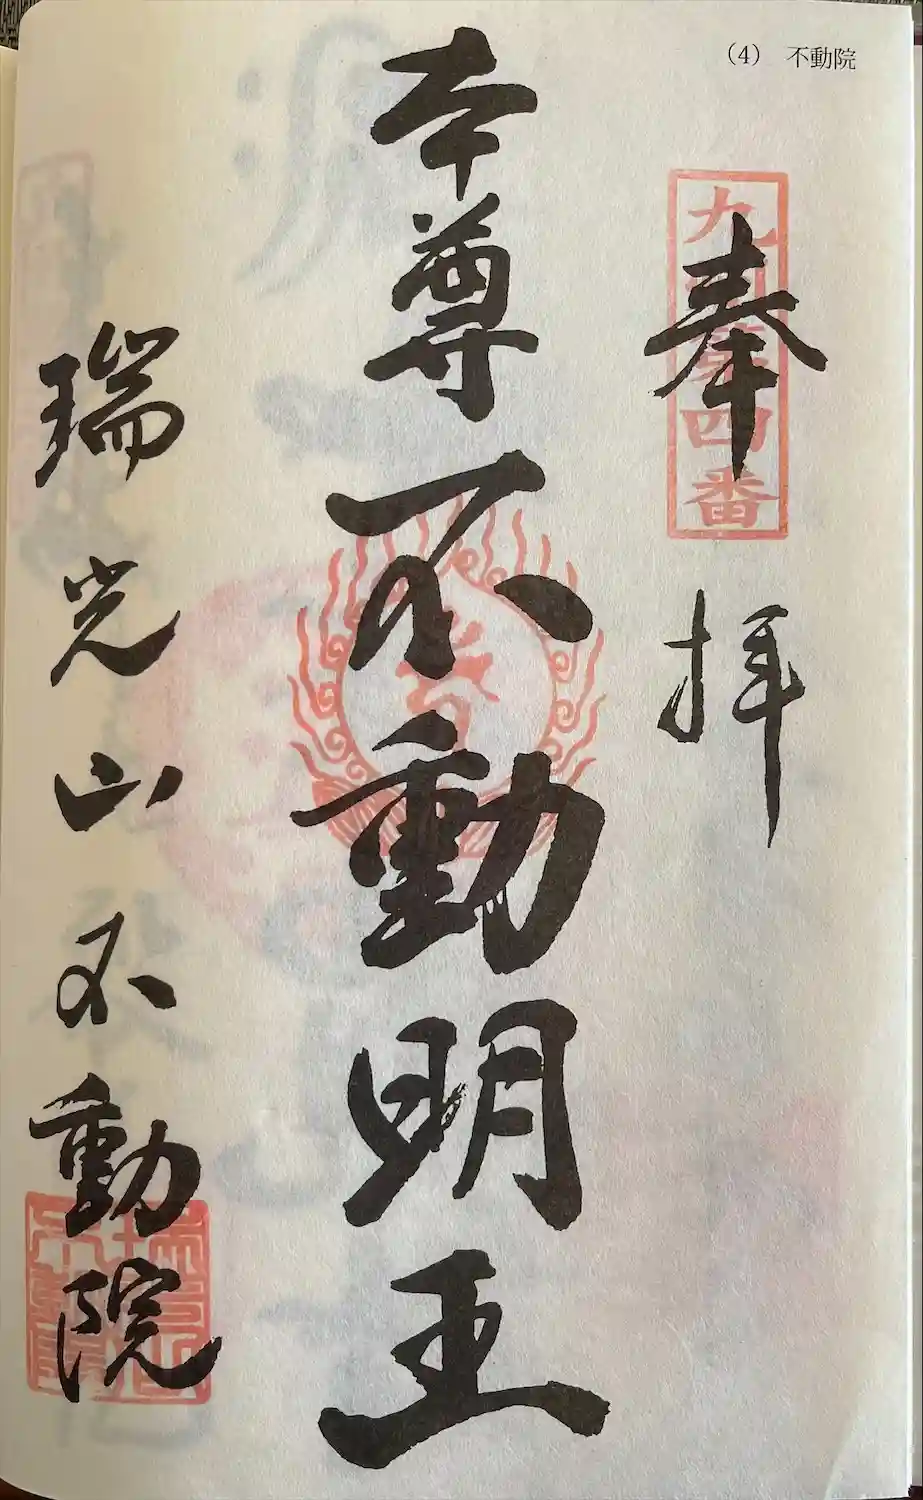 (4) 不動院
奉拝
九 第四番
本尊不動明王
瑞光山不動院